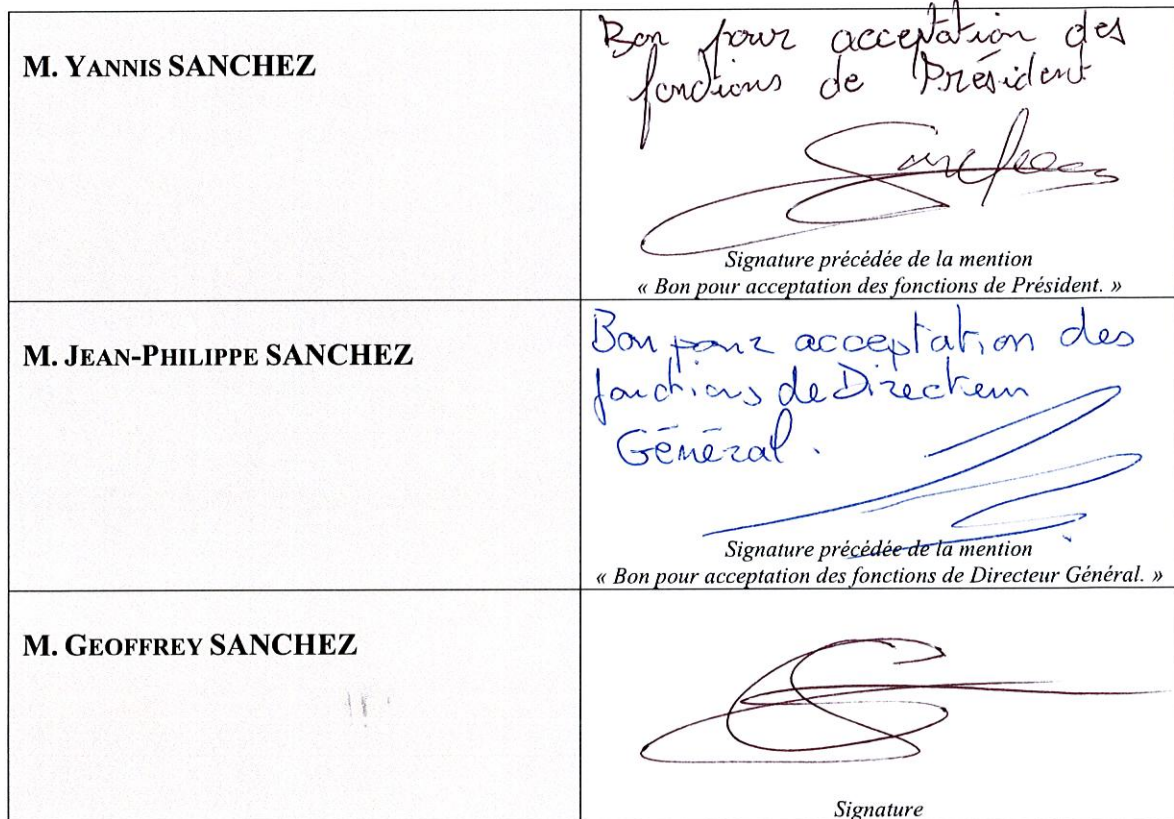 M. YANNIS SANCHEZ
Bon pour acceptation des
fonctions de Président
Signature précédée de la mention
« Bon pour acceptation des fonctions de Président. »
M. JEAN-PHILIPPE SANCHEZ
Bon pour acceptation des
fonctions de Directeur
Général.
Signature précédée de la mention
« Bon pour acceptation des fonctions de Directeur Général. »
M. GEOFFREY SANCHEZ
Signature